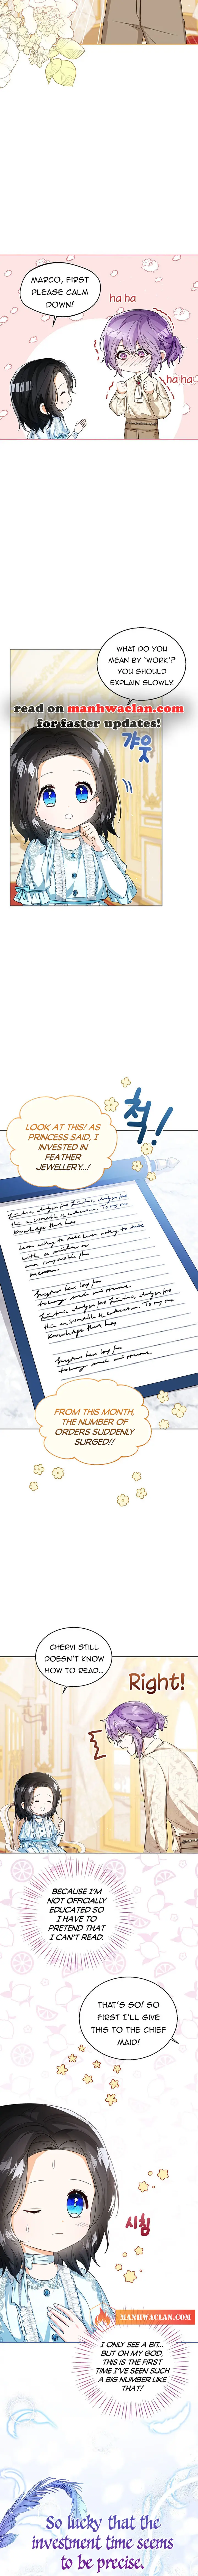 MARCO, FIRST
PLEASE CALM
DOWN!
ha ha
ha ha
WHAT DO YOU
MEAN BY 'WORK'?
YOU SHOULD
EXPLAIN SLOWLY.
read on manhwaclan.com
for faster updates!
갸웃
척!
LOOK AT THIS! AS
PRINCESS SAID, I
INVESTED IN
FEATHER
JEWELLERY...!
FROM THIS MONTH,
THE NUMBER OF
ORDERS SUDDENLY
SURGED!!
CHERVI STILL
DOESN'T KNOW
HOW TO READ...
Right!
BECAUSE I'M
NOT OFFICIALLY
EDUCATED SO
I HAVE TO
PRETEND THAT
I CAN'T READ.
THAT'S SO! SO
FIRST I'LL GIVE
THIS TO THE CHIEF
MAID!
시침
MANHWACLAN.COM
I ONLY SEE A BIT...
BUT OH MY GOD,
THIS IS THE FIRST
TIME I'VE SEEN SUCH
A BIG NUMBER LIKE
THAT!
So lucky that the
investment time seems
to be precise.